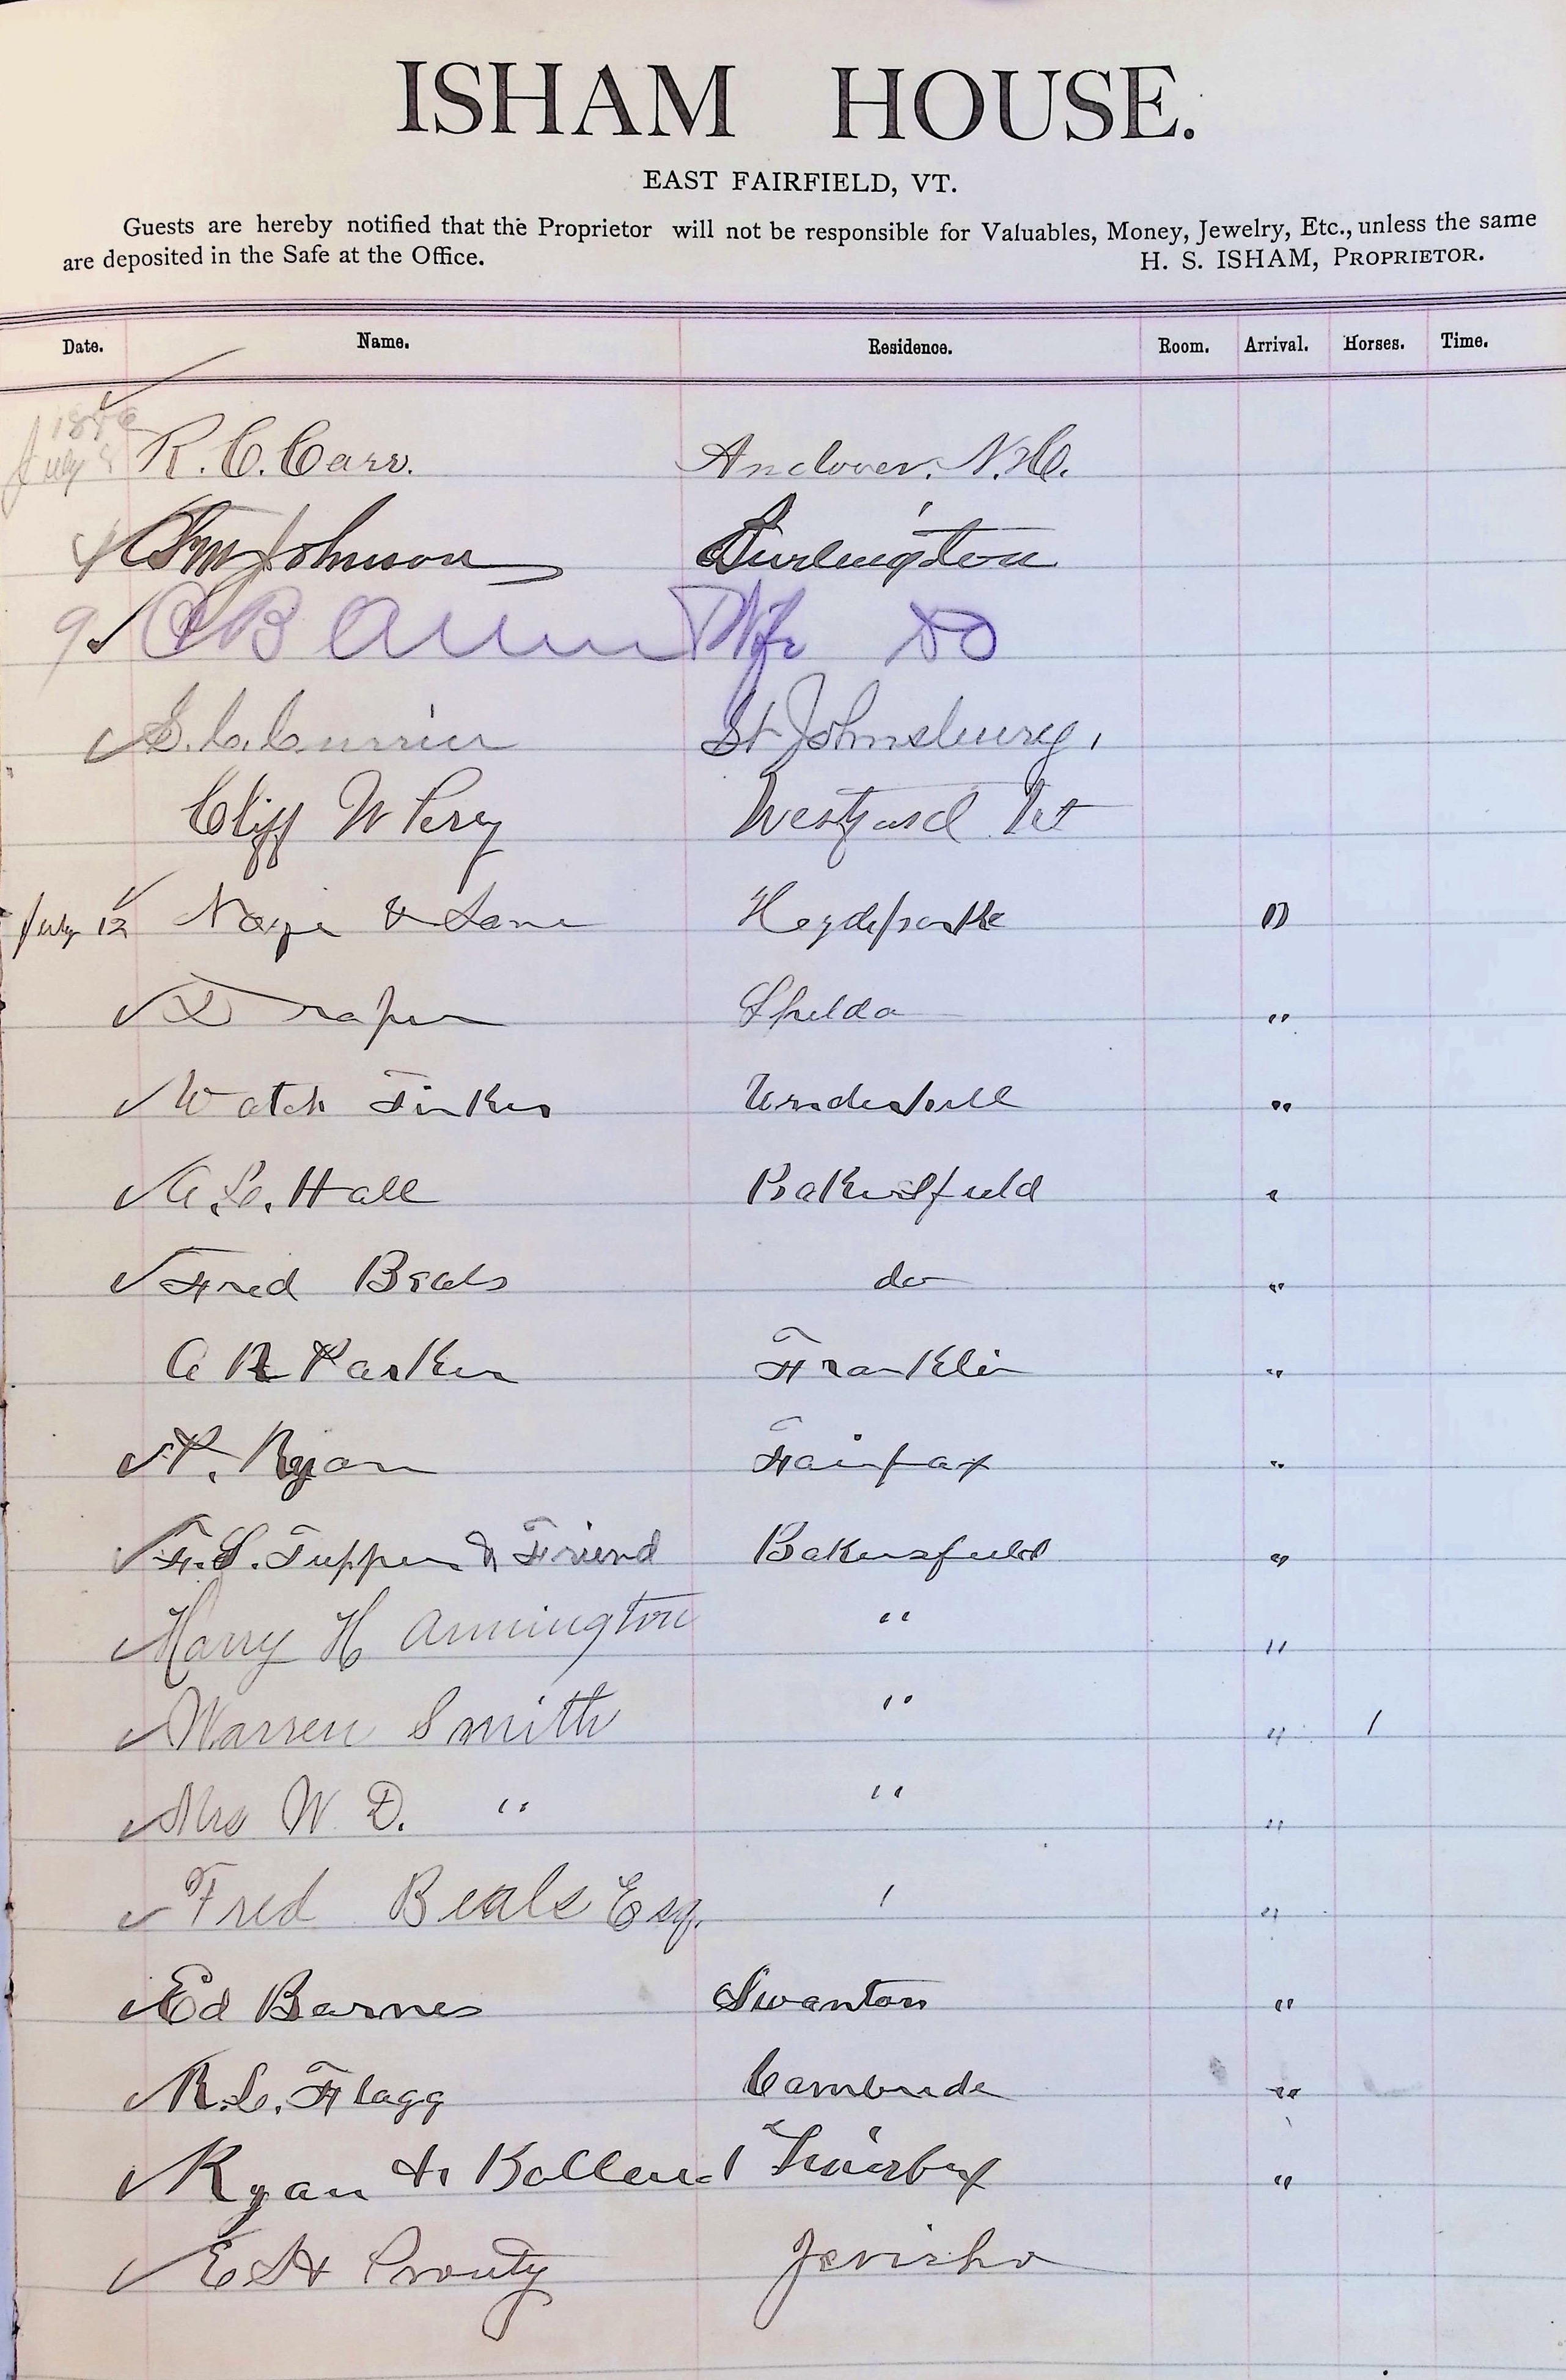 ISHAM HOUSE.
EAST FAIRFIELD, VT.
Guests are hereby notified that the Proprietor will not be responsible for Valuables, Money, Jewelry, Etc., unless the same
are deposited in the Safe at the Office. H. S. ISHAM, PROPRIETOR.
Date. Name. Residence. Room. Arrival. Horses. Time.
July 8 R. C. Carr. Andover. N.H.
Johnson Burlington
9 C B Allen Wife DO
S. C. Currier St Johnsbury,
Cliff W Perry Westford Vt
July 12 & Lane Hydeparke D
Draper Shelda "
Watch Tinker Underhill "
A. C. Hall Bakersfield "
Fred Beals do "
A R Parker Franklin "
P. Ryan Fairfax "
F. S. Tupper & Friend Bakersfield "
Harry H Annington " "
Warren Smith " " 1
Mrs W D. " " "
Fred Beals Esq. " "
Ed Barnes Swanton "
R. C. Flagg Cambride "
Ryan & Bolland "
E H Prouty Jericho